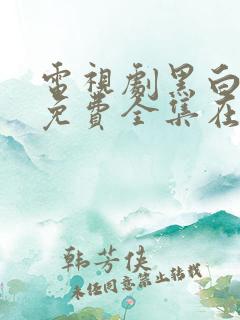 電視劇黑白
免費全集在
韩芳侠
未经同意禁止转载